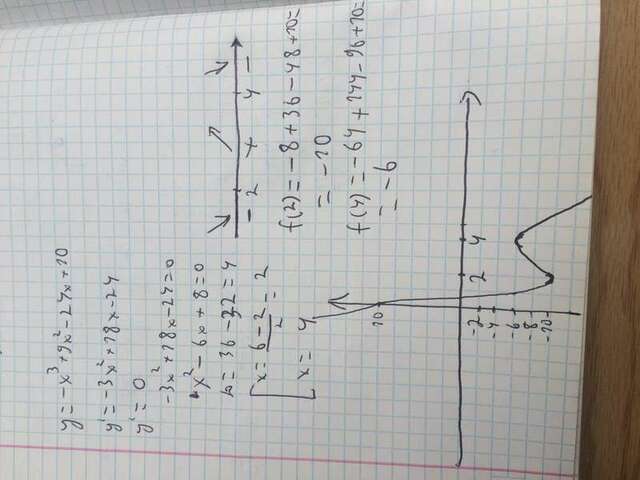 y = -x³ + 9x² - 24x + 10
y' = -3x² + 18x - 24
y' = 0
-3x² + 18x - 24 = 0
x² - 6x + 8 = 0
D = 36 - 32 = 4
x = 6-2/2 = 2
x = 4
- 2 + 4 -
f(2) = -8 + 36 - 48 + 10 =
= -10
f(4) = -64 + 144 - 96 + 10 =
= -6
10
2 4
-2
-4
-6
-8
-10